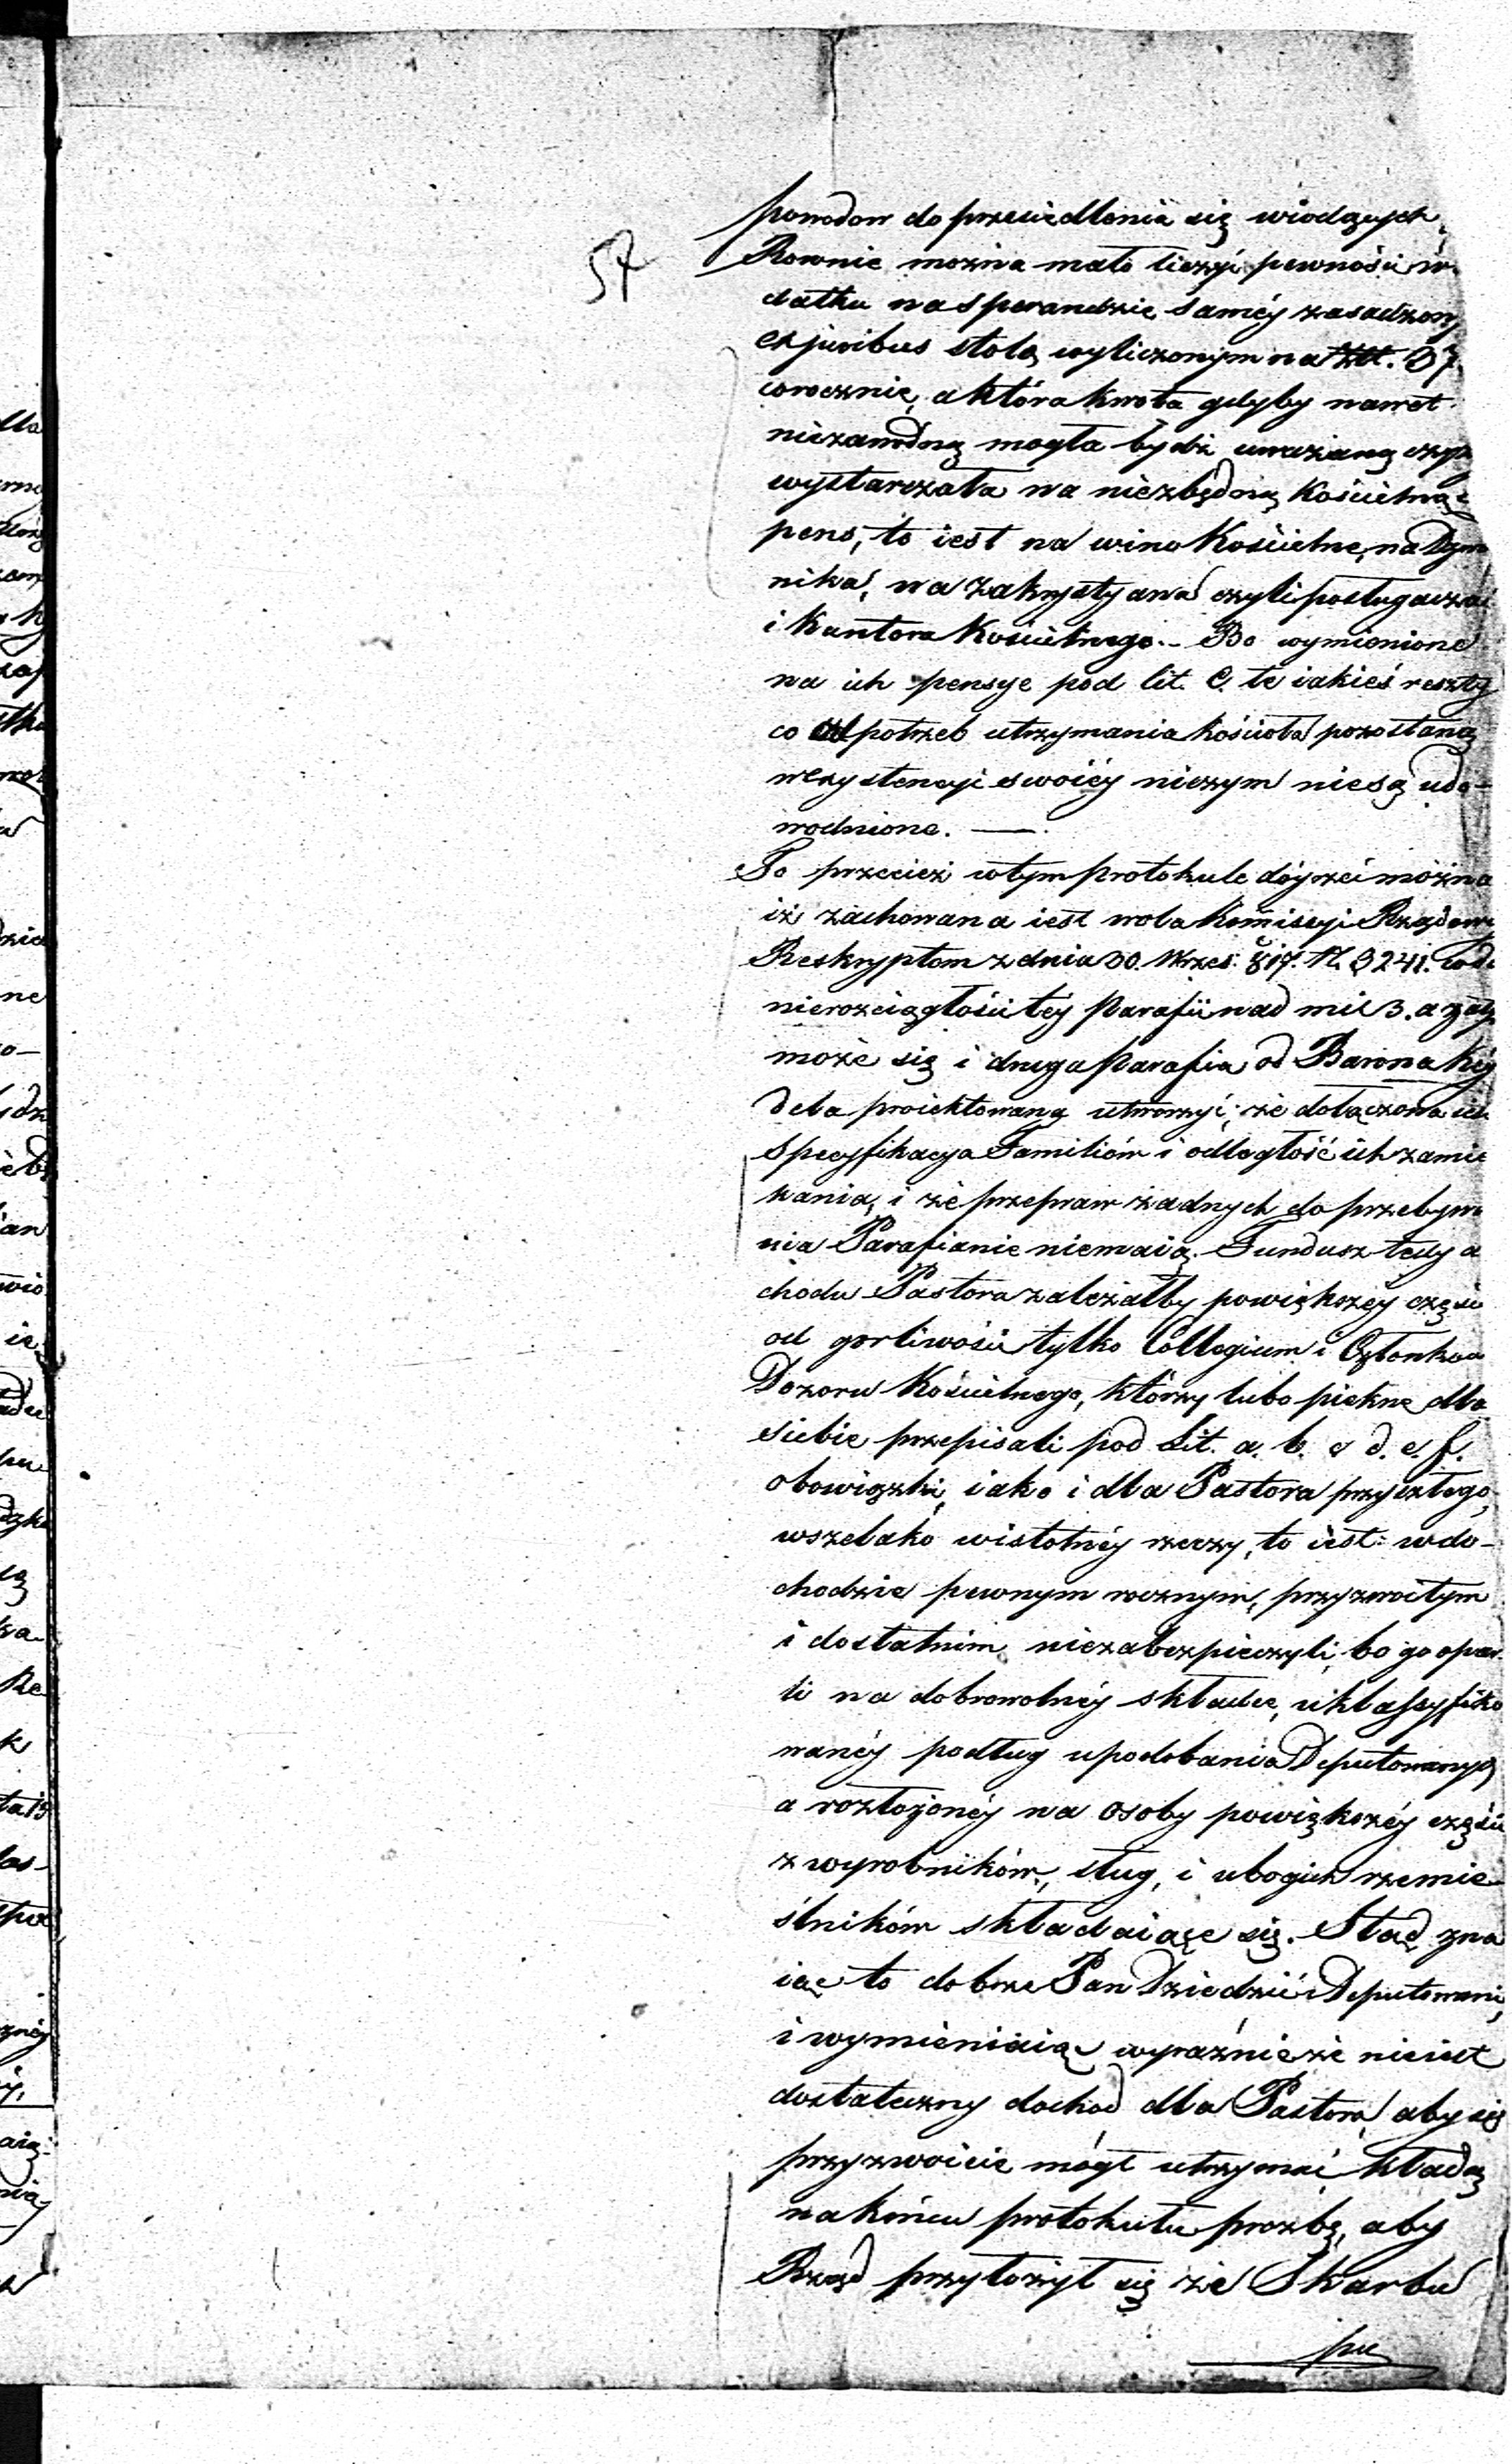 57
powodow do przesiedlenia się wiodących
Rownie można mało liczyć pewności w
datku na sperandzie samey zasadzon
ex juribus stolæ wyliczonym na 37
corocznie, a która kwota gdyby nawet
niezawodną mogła bydź uważaną czyż
wystarczała na niezbędną Kościelną
pens, to iest na wino Kościelne, na
nika, na Zakrystyana czyli posługacza
i Kantora Kościelnego. Bo wymienione
na ich pensye pod lit. C. te iakieś reszty
co od potrzeb utrzymania kościoła pozostaną
w exystencyi swoiéy niczym niesą udo-
wodnione. —
To przecież w tym protokule dóyrzeć można
iż zachowana iest wola Kommissyi Rządowey
Reskryptem z dnia 30. Wrześ. 817. N. 3241. co do
nierozciągłości téy Parafii nad mil 3. a
może się i druga Parafia od Barona Key
dela proiektowana utworzyć; że dołączona iest
Specyfikacya Familiów i odległość ich zamie
kania, i że przepraw żadnych do przebywa
nia Parafianie niemaią. Fundusz tedy
chodu Pastora zależałby powiększéy części
od gorliwości tylko Collegium i Członków
Dozoru Kościelnego, którzy lubo piękne dla
siebie przepisali pod Lit. a. b. c d. e. f.
obowiązki, iako i dla Pastora przyszłego,
wszelako w istotnéy rzeczy, to iest: w do-
chodzie pewnym rocznym, przyzwoitym
i dostatnim niezabezpieczyli, bo go opar-
li na dobrowolnéy składce, uklassyfiko
wanéy podług upodobania Deputowanych
a rozłożonéy na osoby powiększéy części
z wyrobników, sług, i ubogich rzemie-
ślników składaiące się. Stąd zna
iąc to dobrze Pan Dziedzic i Deputowani,
i wymieniaiąc wyraźnie że nieiest
dostateczny dochod dla Pastora aby się
przyzwoicie mógł utrzymać, kładą
na końcu protokułu prozbę, aby
Rząd przyłożył się ze Skarbu
pu